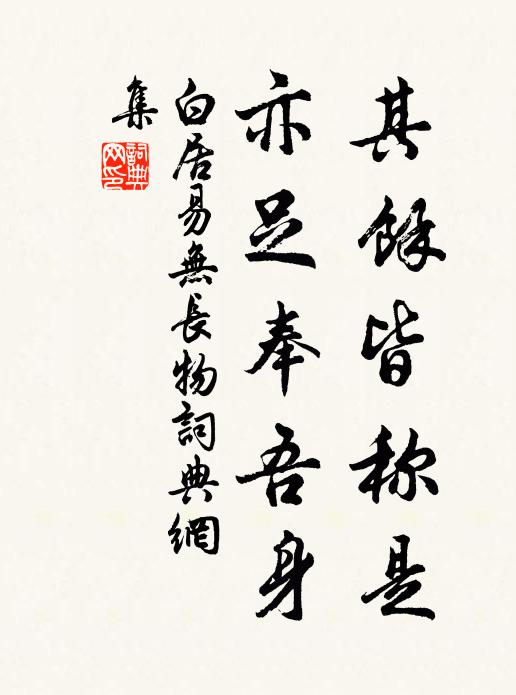 其餘皆称是
亦足奉吾身
白居易無長物詞典網
集
詞典
网